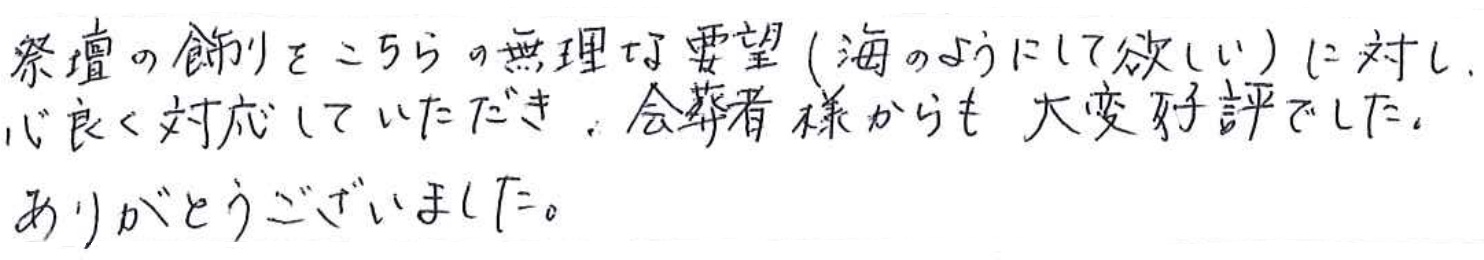 祭壇の飾りをこちらの無理な要望(海のようにして欲しい)に対し、
心良く対応していただき、会葬者様からも大変好評でした。
ありがとうございました。